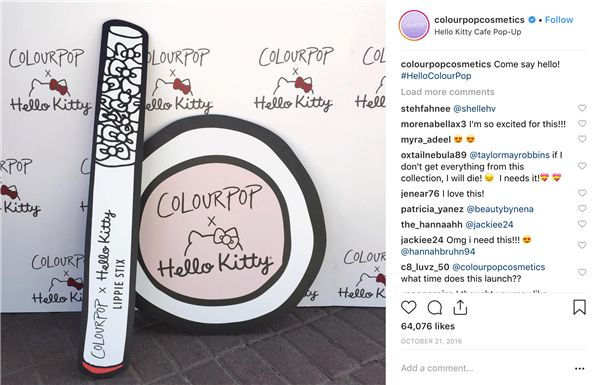 COLOURPOP
x
Hello Kitty
COLOURPOP
x
Hello Kitty
COLOURPOP x Hello Kitty
LIPPIE STIX
COLOURPOP
x
Hello Kitty
COLOURPOP
x
Hello Kitty
colourpopcosmetics • Follow
Hello Kitty Cafe Pop-Up
colourpopcosmetics Come say hello!
#HelloColourPop
Load more comments
stehfahnee @shellehv
morenabellax3 I'm so excited for this!!!
myra_adeel 😍 😍
oxtailnebula89 @taylormayrobbins if I
don't get everything from this
collection, I will die! 😣 I needs it!💝💝
jenear76 I love this!
patricia_yanez @beautybynena
the_hannaahh @jackiee24
jackiee24 Omg i need this!!! 😍
@hannahbruhn94
c8_luvz_50 @colourpopcosmetics
what time does this launch??
64,076 likes
OCTOBER 21, 2016
Add a comment...